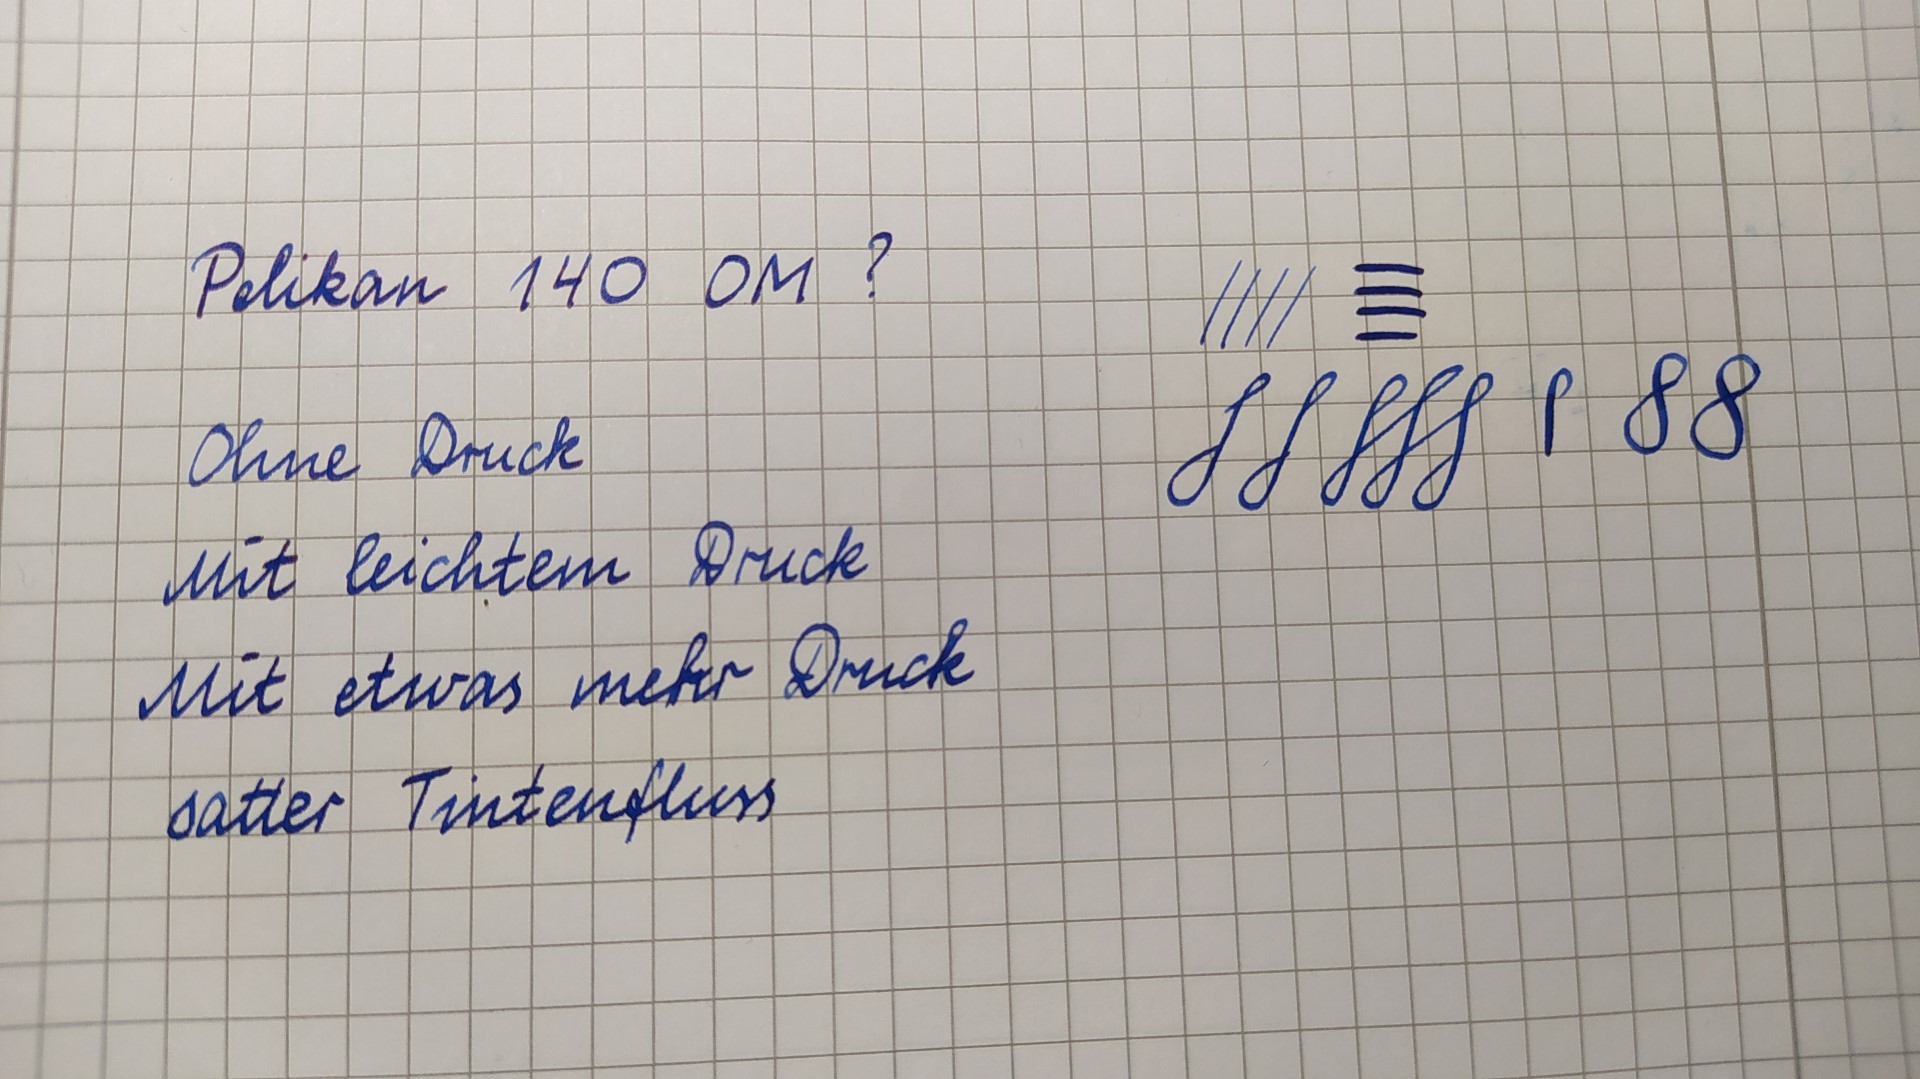 Pelikan 140 OM ?
Ohne Druck
Mit leichtem Druck
Mit etwas mehr Druck
satter Tintenfluss